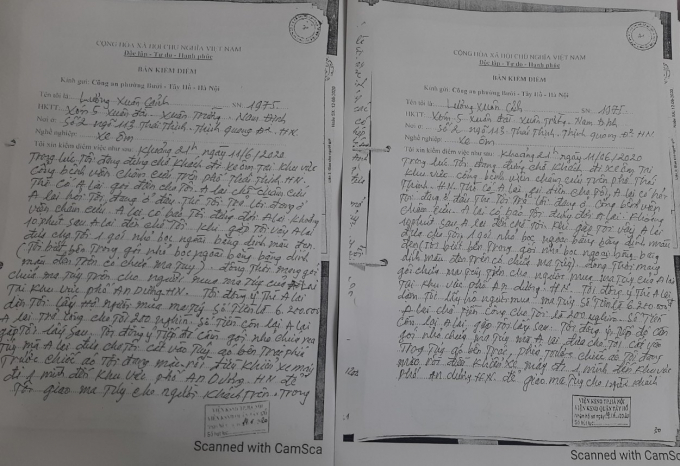 CỘNG HÒA XÃ HỘI CHỦ NGHĨA VIỆT NAM
Độc lập - Tự do - Hạnh phúc
BẢN KIỂM ĐIỂM
Kính gửi: Công an phường Bưởi - Tây Hồ - Hà Nội
Tên tôi là: Lương Xuân Cảnh SN: 1975
HKTT: Xóm 5 Xuân Đài - Xuân Trường - Nam Định
Nơi ở: Số 2 ngõ 113 Thái Thịnh, Thịnh Quang Đ. HN
Nghề nghiệp: xe ôm
Tôi xin kiểm điểm việc như sau: Khoảng 21h ngày 11/6/2020
Trong lúc Tôi đang đứng chờ Khách đi xe ôm Tại Khu vực
Cổng bệnh viện Châm Cứu Trên phố Thái Thịnh. HN.
Thì có A lai gọi điện cho Tôi. A lai
A lai hỏi Tôi đang ở đâu. Thì Tôi Trả lời đang ở
viện châm cứu. A lai có bảo Tôi đứng đợi A lai khoảng
10 phút sau A lai đến chỗ Tôi. Khi gặp Tôi vậy A lai
đưa cho Tôi 1 gói nhỏ bọc ngoài băng dính màu đen.
(Tôi biết bên Trong gói nhỏ bọc ngoài băng dính
màu đen Trên có chứa Ma Tuý). đồng Thời mang gói
chứa ma Tuý Trên cho người mua ma Tuý của A lai
Tại Khu vực phố An Dương. HN. Tôi đồng ý Thì A lai
dặn Tôi lấy Hộ người mua ma Tuý Số Tiền là 6.200.000
A lai Trả công cho Tôi 200 nghìn. Số Tiền còn lại A lai
gặp Tôi lấy sau. Tôi đồng ý Tiếp đó Cầm gói nhỏ chứa ma
Tuý mà A lai đưa cho Tôi cất vào Tay gõ bên Trong phía
Trước chiếc áo Tôi đang mặc rồi điều khiển xe máy
đi 1 mình đến Khu vực phố An Dương. HN để
Tôi giao ma Tuý cho người Khách Trên. Trong
Scanned with CamSca
CỘNG HÒA XÃ HỘI CHỦ NGHĨA VIỆT NAM
Độc lập - Tự do - Hạnh phúc
BẢN KIỂM ĐIỂM
Kính gửi: Công an phường Bưởi - Tây Hồ - Hà Nội
Tên tôi là: Lương Xuân Cảnh SN: 1975
HKTT: Xóm 5 Xuân Đài. Xuân Trường. Nam Định
Nơi ở: Số 2 ngõ 113 Thái Thịnh, Thịnh Quang Đ. HN.
Nghề nghiệp: xe ôm
Tôi xin kiểm điểm việc như sau: Khoảng 21h ngày 11/06/2020
Trong lúc Tôi đang đứng chờ Khách đi xe ôm Tại
Khu vực cổng bệnh viện châm cứu Trên phố Thái
Thịnh. HN. Thì có A lai gọi điện cho Tôi. A lai có hỏi
Tôi đang ở đâu. Thì Tôi Trả lời đang ở cổng bệnh viện
châm cứu. A lai có bảo Tôi đứng đợi A lai. Khoảng
10 phút sau. A lai đến chỗ Tôi. Khi gặp Tôi vậy A lai
đưa cho Tôi 1 gói nhỏ bọc ngoài bằng băng dính màu
đen (Tôi biết bên Trong gói nhỏ bọc ngoài bằng băng
dính màu đen Trên có chứa ma Tuý) đồng Thời mang
gói chứa ma Tuý Trên cho người mua ma Tuý của A lai
Tại Khu vực phố An Dương. HN. Tôi đồng ý Thì A lai
dặn Tôi lấy hộ người mua ma Tuý Số Tiền là 6.200.000đ
A lai Trả Tiền công cho Tôi là 200 nghìn. Số Tiền
còn lại A lai gặp Tôi lấy sau. Tôi đồng ý. Tiếp đó cầm
gói nhỏ chứa ma Tuý mà A lai đưa cho Tôi cất vào
Trong Tay gõ bên Trái phía Trước chiếc áo Tôi đang
mặc rồi điều Khiển xe máy đi 1 mình đến Khu vực
phố An Dương HN. để giao ma Tuý cho người Khách
VIỆN KSND TP HÀ NỘI
VIỆN KSND QUẬN TÂY HỒ
Scanned with CamSc